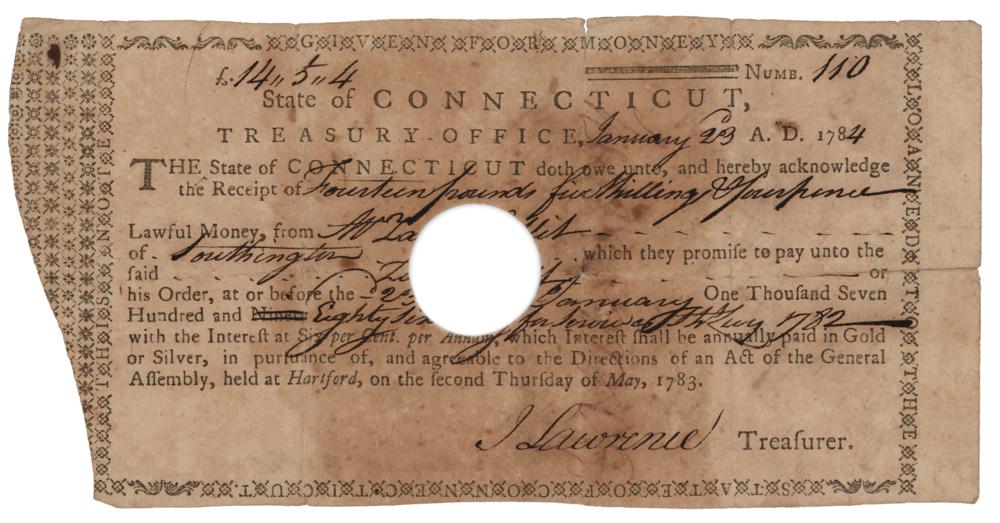 GIVEN FOR MONEY
£.14,, 5,, 4 NUMB. 110
State of CONNECTICUT,
TREASURY-OFFICE, January 23 A. D. 1784
THE State of CONNECTICUT doth owe unto, and hereby acknowledge
the Receipt of Fourteen pounds five Shilling & fourpence
Lawful Money, from
of Southington which they promiſe to pay unto the
ſaid or
his Order, at or before the 23 January One Thouſand Seven
Hundred and Ninety Eighty 1782
with the Intereſt at Six per Cent. per Annum, which Intereſt ſhall be annually paid in Gold
or Silver, in purſuance of, and agreeable to the Directions of an Act of the General
Aſſembly, held at Hartford, on the ſecond Thurſday of May, 1783.
J Lawrence Treaſurer.
THIS NOTE IS
LOANED TO THE
STATE OF CONNECTICUT